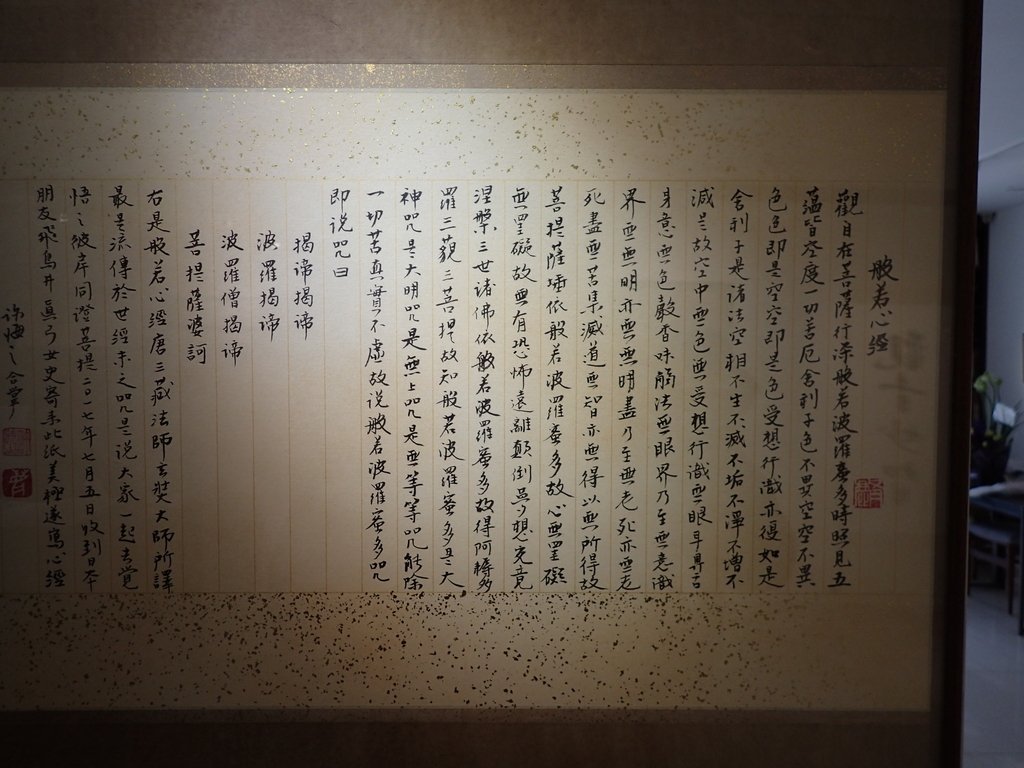 般若心經
觀自在菩薩行深般若波羅蜜多時照見五
蘊皆空度一切苦厄舍利子色不異空空不異
色色即是空空即是色受想行識亦復如是
舍利子是諸法空相不生不滅不垢不淨不增不
減是故空中無色無受想行識無眼耳鼻舌
身意無色聲香味觸法無眼界乃至無意識
界無無明亦無無明盡乃至無老死亦無老
死盡無苦集滅道無智亦無得以無所得故
菩提薩埵依般若波羅蜜多故心無罣礙
無罣礙故無有恐怖遠離顛倒夢想究竟
涅槃三世諸佛依般若波羅蜜多故得阿耨多
羅三藐三菩提故知般若波羅蜜多是大
神咒是大明咒是無上咒是無等等咒能除
一切苦真實不虛故说般若波羅蜜多咒
即说咒曰
揭諦揭諦
波羅揭諦
波羅僧揭諦
菩提薩婆訶
右是般若心經唐三藏法師玄奘大師所譯
最是流傳於世經末之咒是说大家一起去覺
悟之彼岸同證菩提二〇一七年七月五日收到日本
朋友飛鳥井真弓女史寄来此紙美極遂寫心經